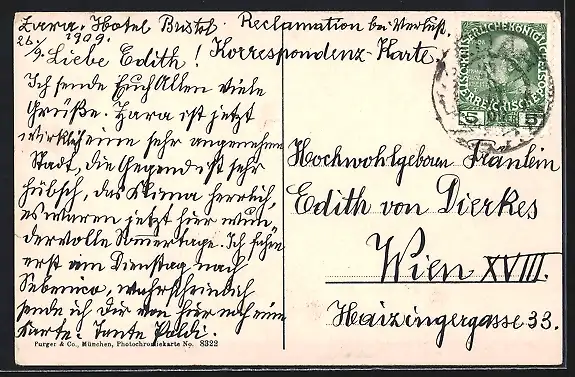 Zara. Hotel Bristol Reclamation bei Verlust.
26/9. 1909. Korrespondenz-Karte
Liebe Edith!
Ich sende Euch Allen viele
Grüße. Zara ist jetzt
wirklich eine sehr angenehme
Stadt, die Gegend ist sehr
hübsch, das Klima herrlich,
es waren jetzt hier wun
dervolle Sommertage. Ich fahre
erst am Dienstag nach
Sebenico, wahrscheinlich
sende ich dir von hier noch eine
Karte. Tante Poldi.
Purger & Co., München, Photochromiekarte No. 8322
KAISERLICHE KÖNIGLICHE
ÖSTERREICHISCHE POST
5 HELLER 5
Hochwohlgeborn Fräulein
Edith von Dierkes
Wien XVIII.
Haizingergasse 33.